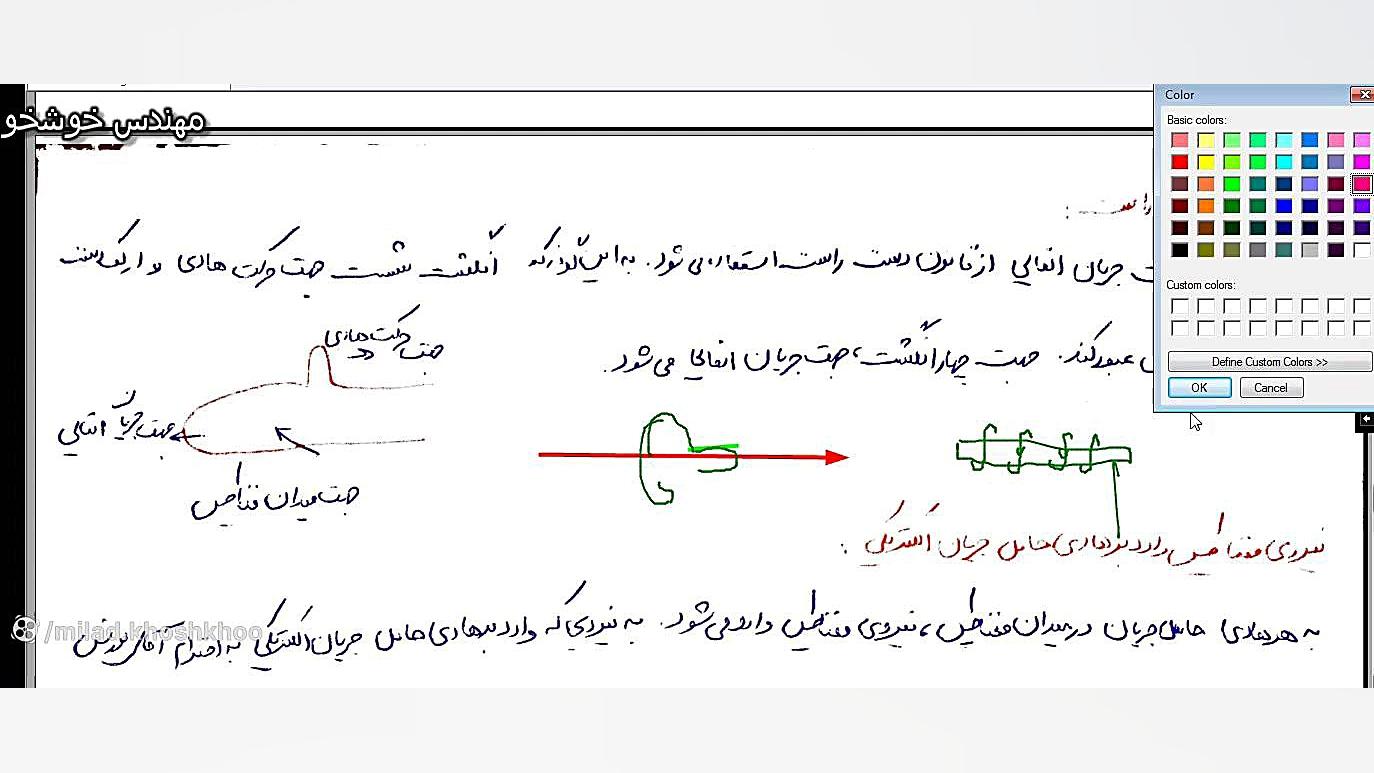 مهندس خوشخو
Color
Basic colors:
Custom colors:
Define Custom Colors >>
OK
Cancel
راست:
ت جریان القایی از قانون دست راست استفاده می شود. به این گونه که انگشت شست جهت حرکت هادی و از کف دست
عبور کند. جهت چهار انگشت، جهت جریان القایی می شود.
جهت حرکت هادی
جهت جریان القایی
جهت میدان مغناطیسی
نیروی مغناطیسی وارد بر هادی حامل جریان الکتریکی:
به هر هادی حامل جریان در میدان مغناطیسی، نیروی مغناطیسی وارد می شود. به نیرویی که وارد بر هادی حامل جریان الکتریکی به احترام آقای
/milad.khoshkhoo